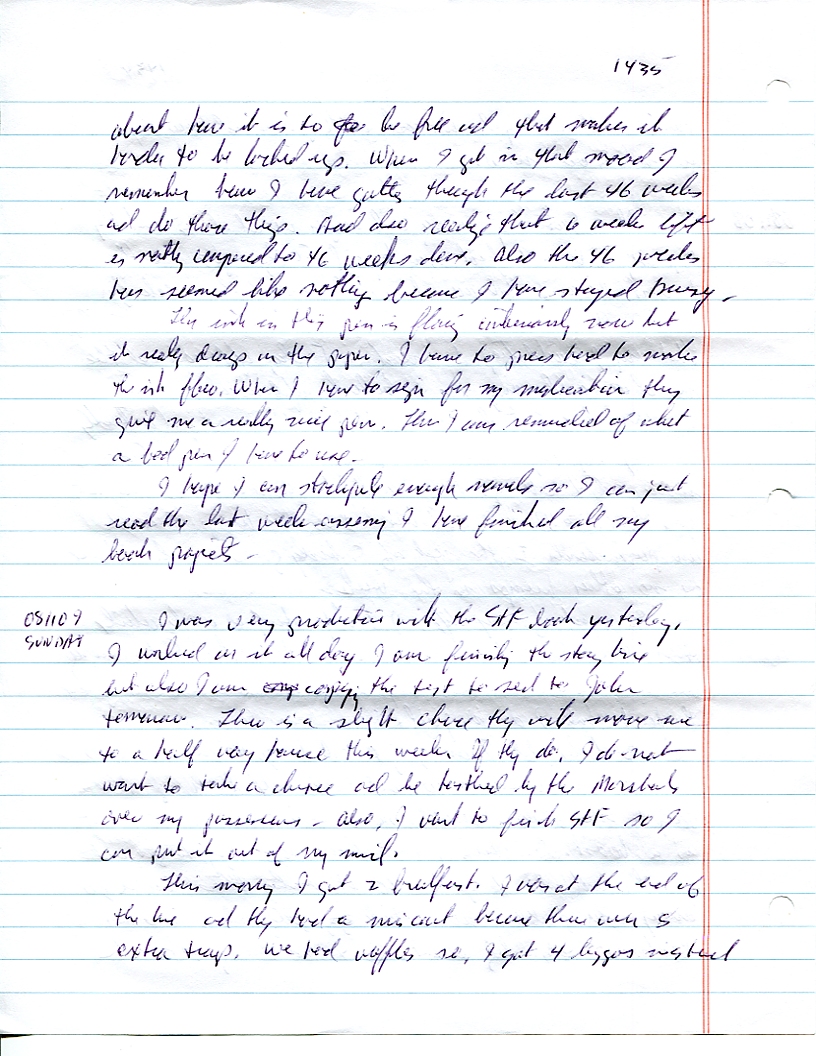 1435
about how it is to be free and that makes it
harder to be locked up. When I get in that mood I
remember how I have gotten through the last 46 weeks
and do those things. And also realize that 6 weeks left
is nothing compared to 46 weeks done. Also the 46 weeks
has seemed like nothing because I have stayed busy.
The ink in this pen is flowing continuously now but
it really drags on the paper. I have to press hard to make
the ink flow. When I have to sign for my medication they
give me a really nice pen. Then I am reminded of what
a bad pen I have to use.
I hope I can stockpile enough novels so I can just
read the last week assuming I have finished all my
book projects -
051109
SUNDAY
I was very productive with the SHF book yesterday.
I worked on it all day I am finishing the story line
but also I am copying the text to send to John
tomorrow. There is a slight chance they will move me
to a half way house this week. If they do, I do not
want to take a chance and be hassled by the Marshals
over my possessions - also, I want to finish SHF so I
can put it out of my mind.
This morning I got 2 breakfasts. I was at the end of
the line and they had a miscount because there were 5
extra trays. We had waffles so, I got 4 instead